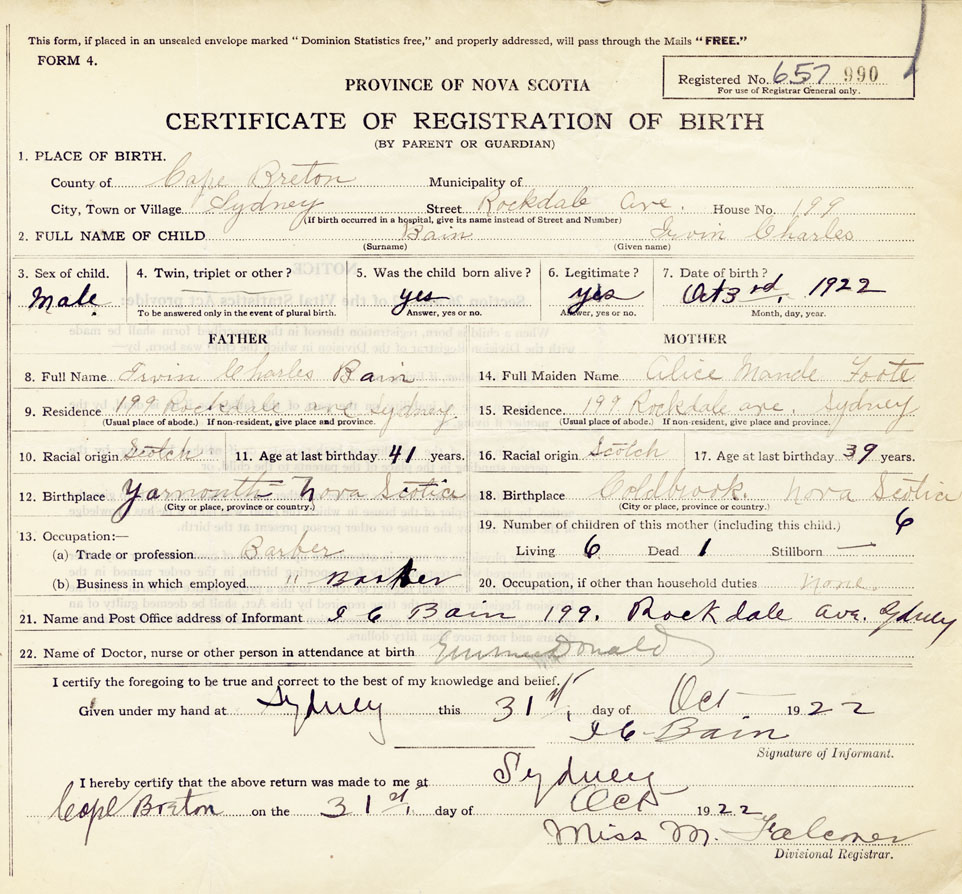 This form, if placed in an unsealed envelope marked "Dominion Statistics free," and properly addressed, will pass through the Mails "FREE."
FORM 4.
Registered No. 657 990
For use of Registrar General only.
PROVINCE OF NOVA SCOTIA
CERTIFICATE OF REGISTRATION OF BIRTH
(BY PARENT OR GUARDIAN)
1. PLACE OF BIRTH.
County of Cape Breton Municipality of
City, Town or Village Sydney Street Rockdale Ave. House No. 199
(If birth occurred in a hospital, give its name instead of Street and Number)
2. FULL NAME OF CHILD Bain Irvin Charles
(Surname) (Given name)
3. Sex of child. 4. Twin, triplet or other? 5. Was the child born alive? 6. Legitimate? 7. Date of birth?
Male yes yes Oct 3rd, 1922
To be answered only in the event of plural birth. Answer, yes or no. Answer, yes or no. Month, day, year.
FATHER MOTHER
8. Full Name Irvin Charles Bain 14. Full Maiden Name Alice Maude Foote
9. Residence 199 Rockdale ave Sydney 15. Residence 199 Rockdale ave. Sydney
(Usual place of abode.) If non-resident, give place and province. (Usual place of abode.) If non-resident, give place and province.
10. Racial origin Scotch 11. Age at last birthday 41 years. 16. Racial origin Scotch 17. Age at last birthday 39 years.
12. Birthplace Yarmouth Nova Scotia 18. Birthplace Coldbrook. Nova Scotia
(City or place, province or country.) (City or place, province or country.)
13. Occupation:— 19. Number of children of this mother (including this child.) 6
(a) Trade or profession Barber Living 6 Dead 1 Stillborn —
(b) Business in which employed " Barber 20. Occupation, if other than household duties None
21. Name and Post Office address of Informant I C Bain 199. Rockdale Ave. Sydney
22. Name of Doctor, nurse or other person in attendance at birth
I certify the foregoing to be true and correct to the best of my knowledge and belief.
Given under my hand at Sydney this 31st, day of Oct 1922
I C Bain
Signature of Informant.
I hereby certify that the above return was made to me at Sydney
Cape Breton on the 31st, day of Oct 1922
Miss M. Falconer
Divisional Registrar.